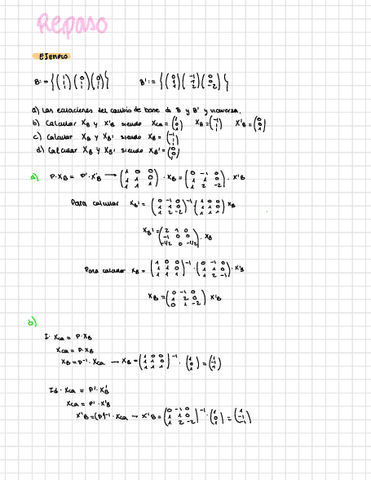 Repaso
EJEMPLO
B = {(1 1 1) (0 1 1) (0 0 1)} B' = {(0 1 1) (-1 1 2) (0 0 -2)}
a) Las ecuaciones del cambio de base de B y B' y inversa.
b) Calcular X_B y X'_B siendo X_CA =
c) Calcular X_B y X_B' siendo X_B =
d) Calcular X_B y X_B' siendo X'_B =
a) P·X_B = P'·X'_B → (1 0 0 / 1 1 0 / 1 1 1) · X_B = (0 -1 0 / 1 1 0 / 1 2 -2) · X'_B
Para calcular X_B' = (0 -1 0 / 1 1 0 / 1 2 -2)^-1 (1 0 0 / 1 1 0 / 1 1 1) X_B
X_B' = (2 1 0 / -1 0 0 / -1/2 0 -1/2) · X_B
Para calcular X_B = (1 0 0 / 1 1 0 / 1 1 1)^-1 · (0 -1 0 / 1 1 0 / 1 2 -2) · X'_B
X_B = (0 -1 0 / 1 2 0 / 0 1 -2) X'_B
b)
I · X_CA = P · X_B
X_CA = P · X_B
X_B = P^-1 · X_CA → X_B = (1 0 0 / 1 1 0 / 1 1 1)^-1 ·
Id · X_CA = P' · X'_B
X_CA = P' · X'_B
X'_B = (P')^-1 · X_CA → X'_B = (0 -1 0 / 1 1 0 / 1 2 -2)^-1 ·